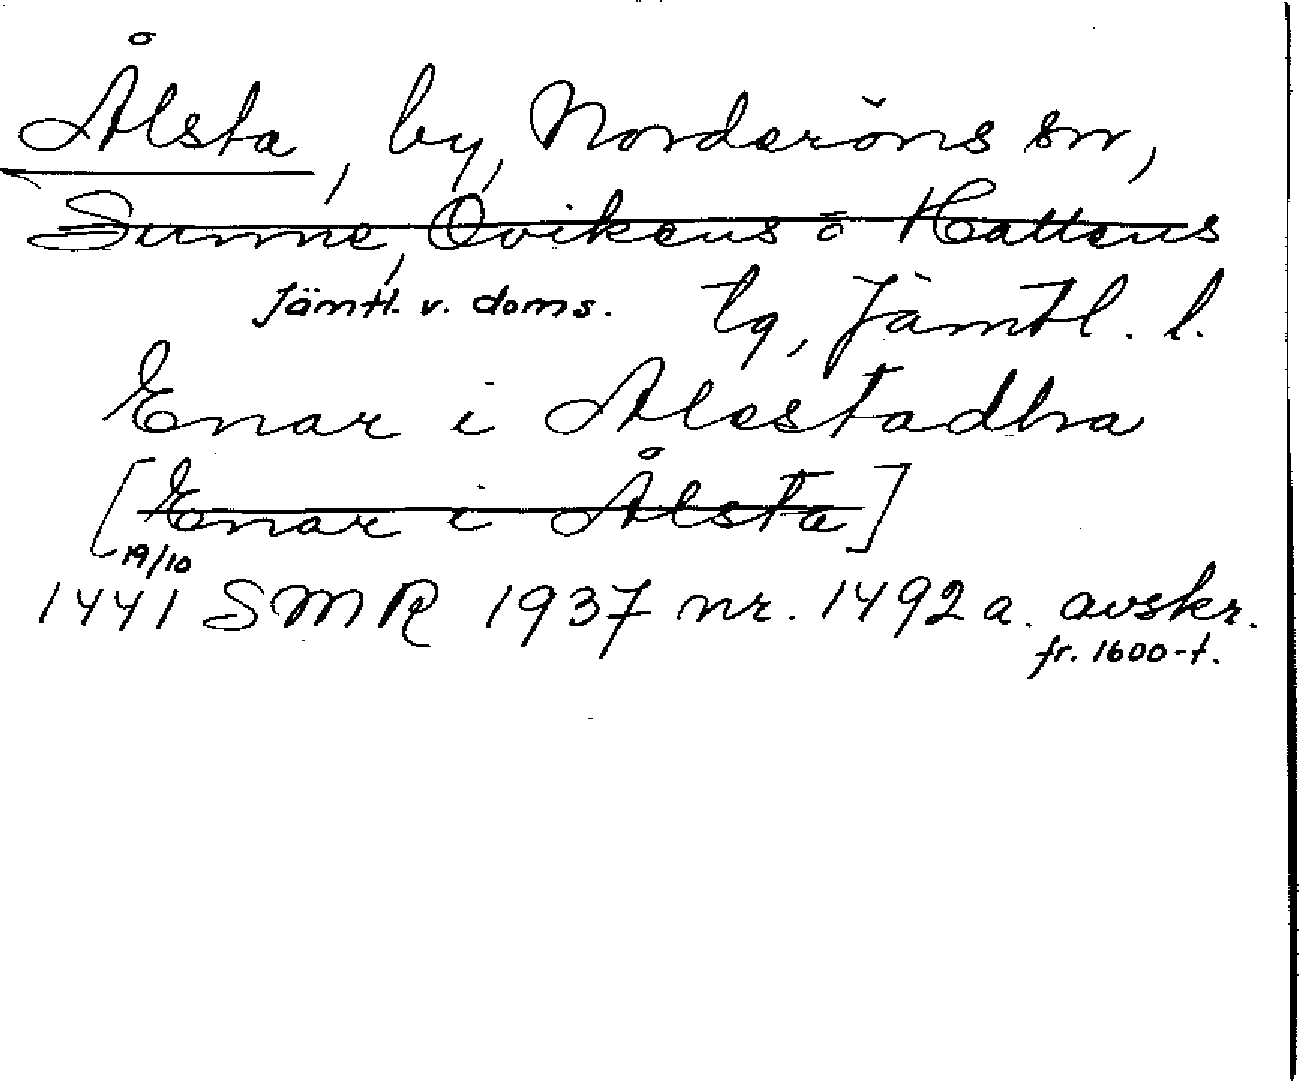 Ålsta, by, Norderöns sn,
Sunne, Ovikens o Hallens
Jämtl. v. doms. tg, Jämtl. l.
Enar i Alestadha
[Enar i Ålsta]
19/10
1441 SMR 1937 nr. 1492a. avskr.
fr. 1600-t.